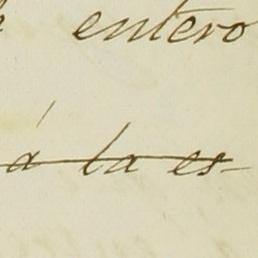 entero
á la es-